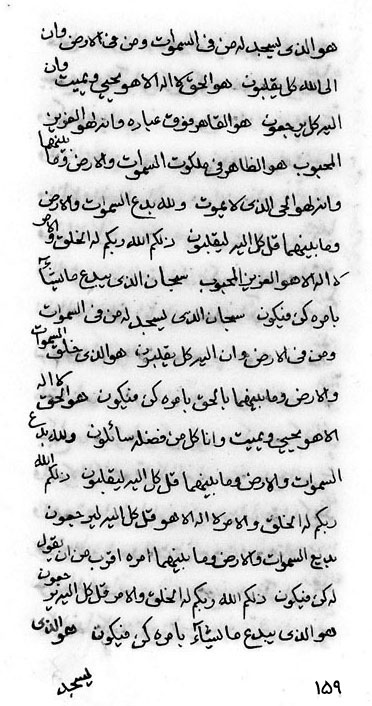 هو الذی یسجد له من فی السموات و من فی الارض و ان
الی الله کل یقلبون هو الحق لا اله الا هو یحیی و یمیت و ان
الیه کل یرجعون هو القاهر فوق عباده و انه لهو العزیز
المحبوب هو الظاهر فی ملکوت السموات و الارض و ما بینهما
و انه لهو الحی الذی لا یموت و لله بدع السموات و الارض
و ما بینهما قل کل الیه لیقلبون ذلکم الله ربکم له الخلق و الامر
لا اله الا هو العزیز المحبوب سبحان الذی یبدع ما یشآء
بامره کن فیکون سبحان الذی یسجد له من فی السموات
و من فی الارض و ان الیه کل یقلبون هو الذی خلق السموات
و الارض و ما بینهما بالحق بامره کن فیکون هو الحق لا اله
الا هو یحیی و یمیت و انا کل من فضله سائلون و لله بدع
السموات و الارض و ما بینهما قل کل الیه لیقلبون ذلکم الله
ربکم له الخلق و الامر لا اله الا هو قل کل الیه لیرجعون
بدیع السموات و الارض و ما بینهما امره اقرب من ان یقول
له کن فیکون ذلکم الله ربکم له الخلق و الامر قل کل الیه یرجعون
هو الذی یبدع ما یشآء بامره کن فیکون هو الذی
یسجد
۱۵۹